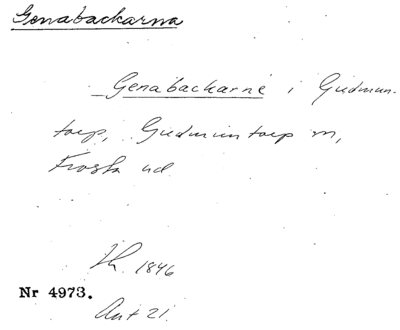 Genabackarna
Genabackarne i Gudmun-
torp, Gudmuntorp sn,
Frosta hd
1846
Nr 4973.
Ant 21.